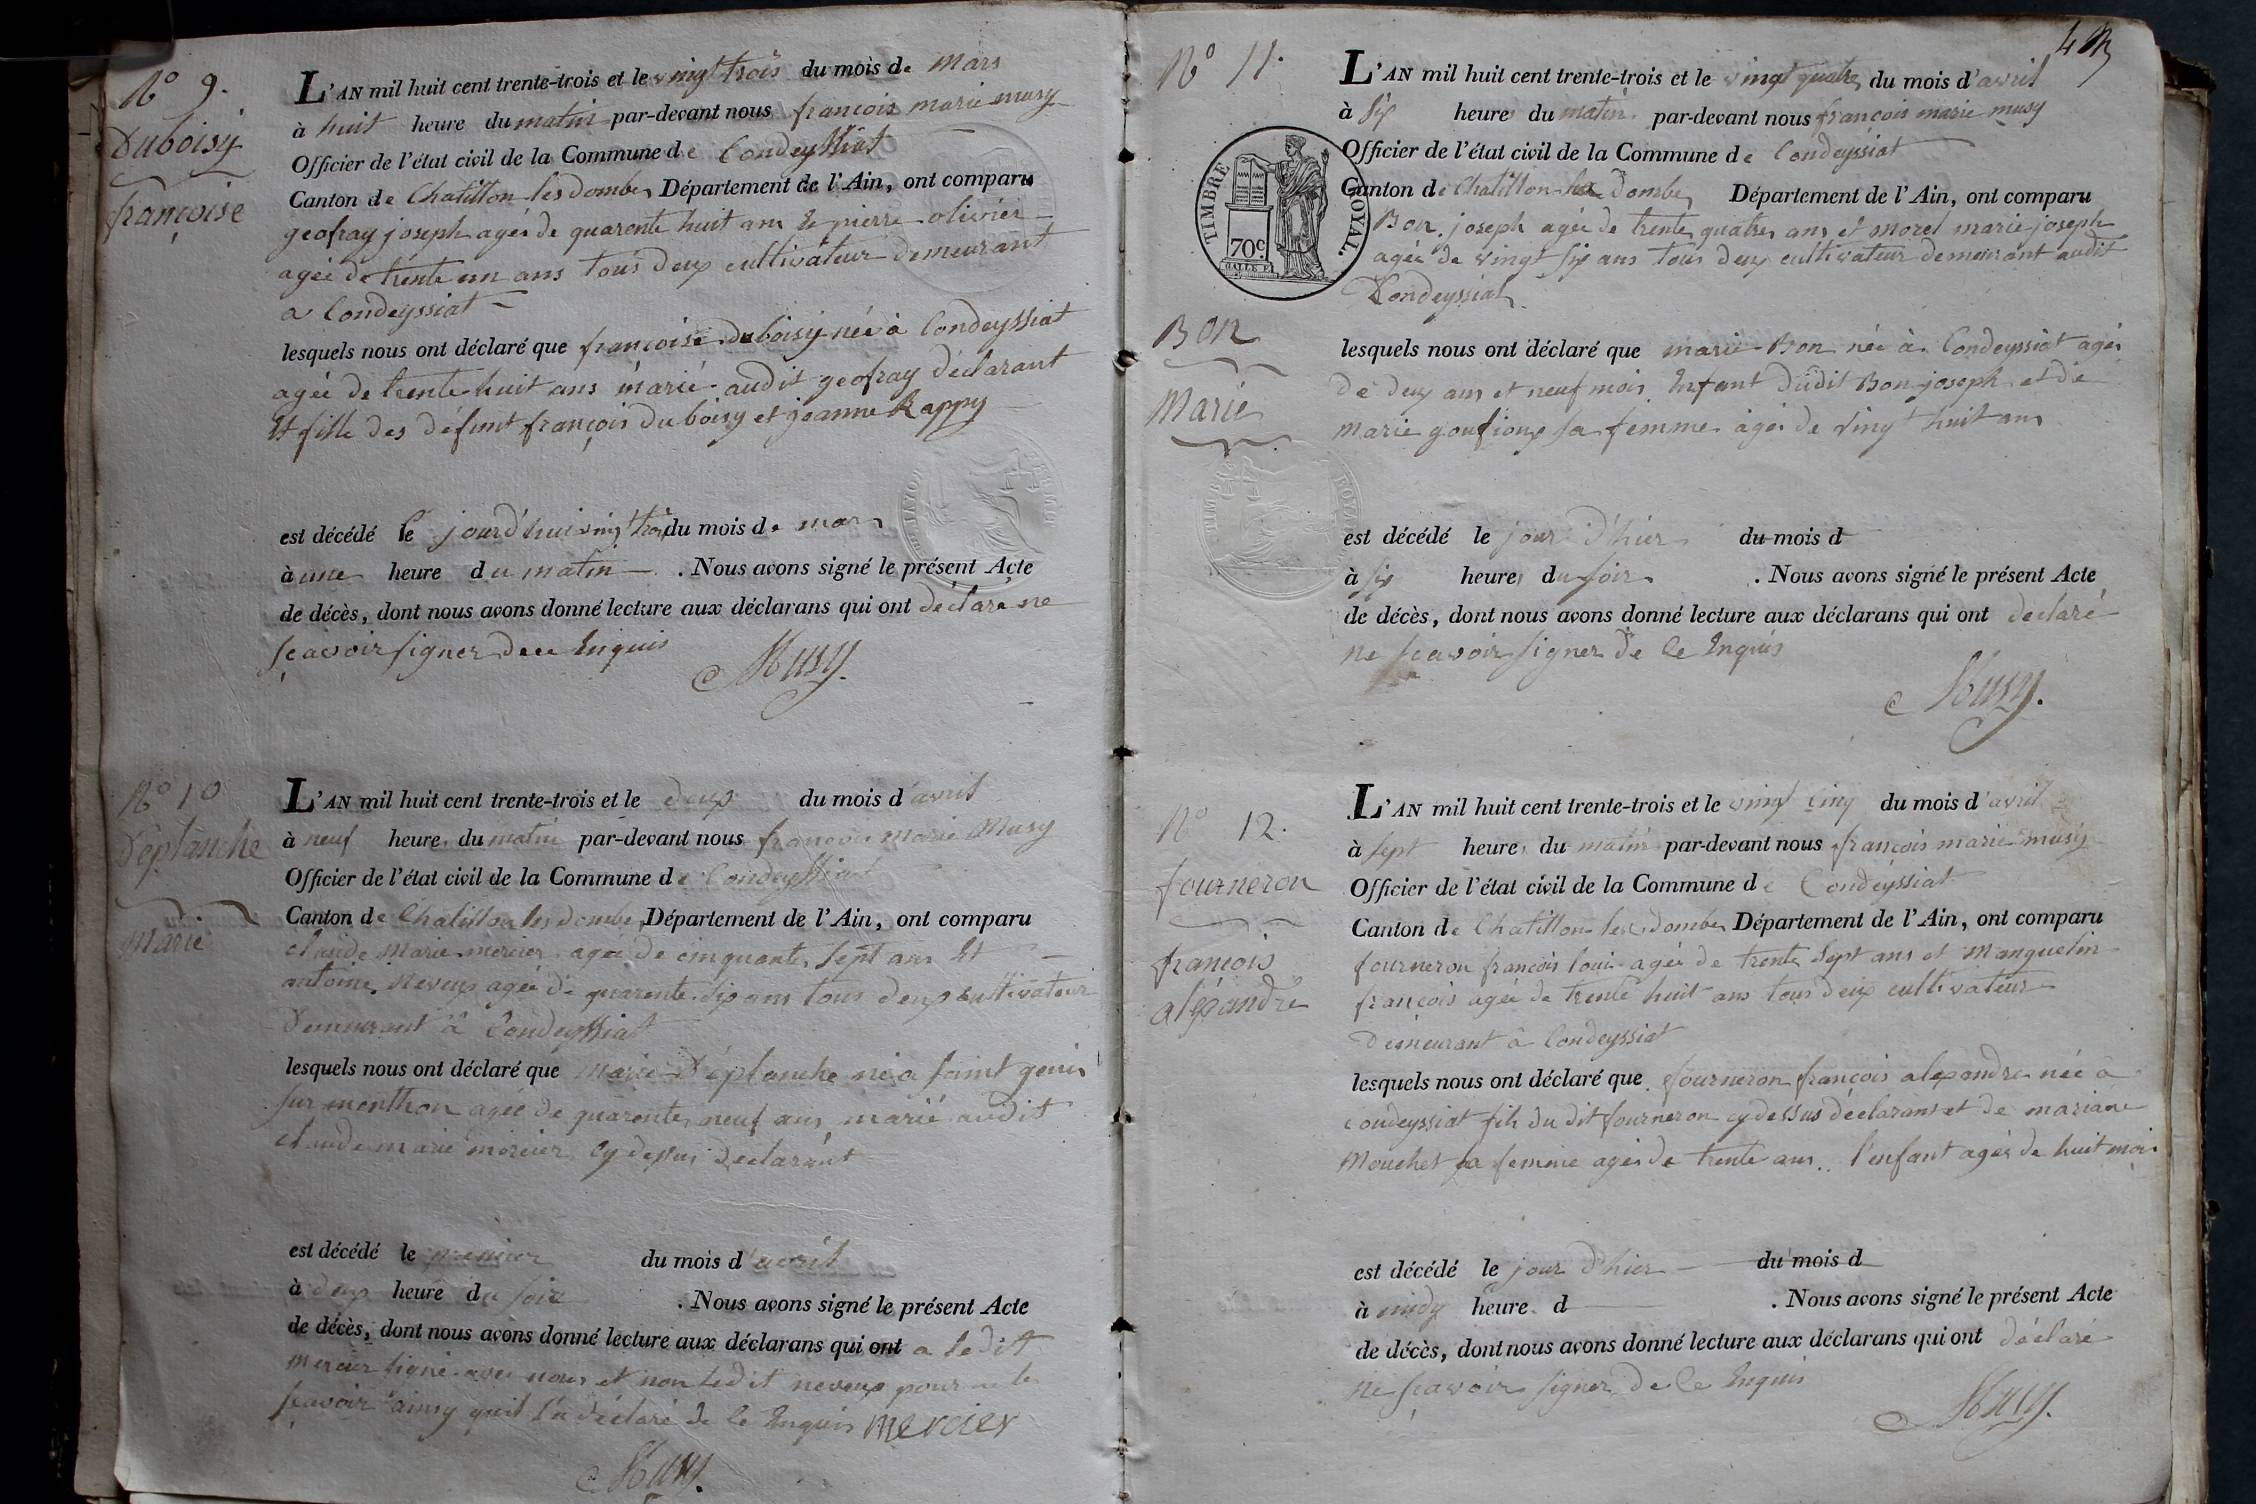 N° 9.
Duboisy
françoise
L'AN mil huit cent trente-trois et le vingt trois du mois de Mars
à huit heure du matin par-devant nous françois marie musy
Officier de l'état civil de la Commune de Condeyssiat
Canton de Chatillon les dombes Département de l'Ain, ont comparu
geofray joseph agés de quarente huit ans et pierre olivier
agée de trente un ans tous deux cultivateur demeurant
a Condeyssiat
lesquels nous ont déclaré que françoise Duboisy née à Condeyssiat
agée de trente huit ans marié audit geofray déclarant
Et fille des défunt françois Duboisy et jeanne Rappy
est décédé le jourd'hui vingt trois du mois de mars
à une heure du matin . Nous avons signé le présent Acte
de décès, dont nous avons donné lecture aux déclarans qui ont déclaré ne
sçavoir signer de ce Enquis
Musy.
N° 10
Déplanche
Marie
L'AN mil huit cent trente-trois et le deux du mois d'avril
à neuf heure du matin par-devant nous françois marie Musy
Officier de l'état civil de la Commune de Condeyssiat
Canton de Chatillon les dombes Département de l'Ain, ont comparu
claude Marie mercier agée de cinquante sept ans Et
antoine Neveux agée de quarente six ans tous deux cultivateur
Demeurant à Condeyssiat
lesquels nous ont déclaré que Marie Déplanche né a saint genis
sur menthon agée de quarente neuf ans marié audit
claude marie mercier cy dessus déclarant
est décédé le premier du mois d'avril
à deux heure du soir . Nous avons signé le présent Acte
de décès, dont nous avons donné lecture aux déclarans qui ont a ledit
mercier signé avec nous et non ledit neveux pour ne le
sçavoir ainsy quil l'a déclaré de ce Enquis mercier
Musy.
4
N° 11.
TIMBRE ROYAL.
70c.
Bon
Marie
L'AN mil huit cent trente-trois et le vingt quatre du mois d'avril
à six heure du matin par-devant nous françois marie musy
Officier de l'état civil de la Commune de Condeyssiat
Canton de Chatillon les Dombes Département de l'Ain, ont comparu
Bon joseph agée de trente quatre ans et morel marie joseph
agée de vingt six ans tous deux cultivateur demeurant audit
Condeyssiat
lesquels nous ont déclaré que marie Bon née à Condeyssiat agée
de deux ans et neuf mois Enfant dudit Bon joseph et de
marie goufioux sa femme agée de vingt huit ans
est décédé le jour d'hier du mois d
à six heure du soir . Nous avons signé le présent Acte
de décès, dont nous avons donné lecture aux déclarans qui ont declaré
ne sçavoir signer de ce Enquis
Musy.
N° 12.
fourneron
françois
alexandre
L'AN mil huit cent trente-trois et le vingt cinq du mois d'avril
à sept heure du matin par-devant nous françois marie musy
Officier de l'état civil de la Commune de Condeyssiat
Canton de Chatillon les dombes Département de l'Ain, ont comparu
fourneron françois louis agée de trente sept ans et Manguelin
françois agée de trente huit ans tous deux cultivateur
Demeurant à Condeyssiat
lesquels nous ont déclaré que fourneron françois alexandre née à
condeyssiat fils du dit fourneron cy dessus déclarant et de mariane
Mouchet sa femme agée de trente ans. l'enfant agés de huit mois
est décédé le jour d'hier du mois d
à midy heure d . Nous avons signé le présent Acte
de décès, dont nous avons donné lecture aux déclarans qui ont déclaré
ne sçavoir signer de ce Enquis
Musy.